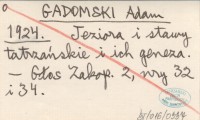 GADOMSKI Adam
1924. Jeziora i stawy
tatrzańskie i ich geneza.
— Głos Zakop. 2, nry 32
i 34.